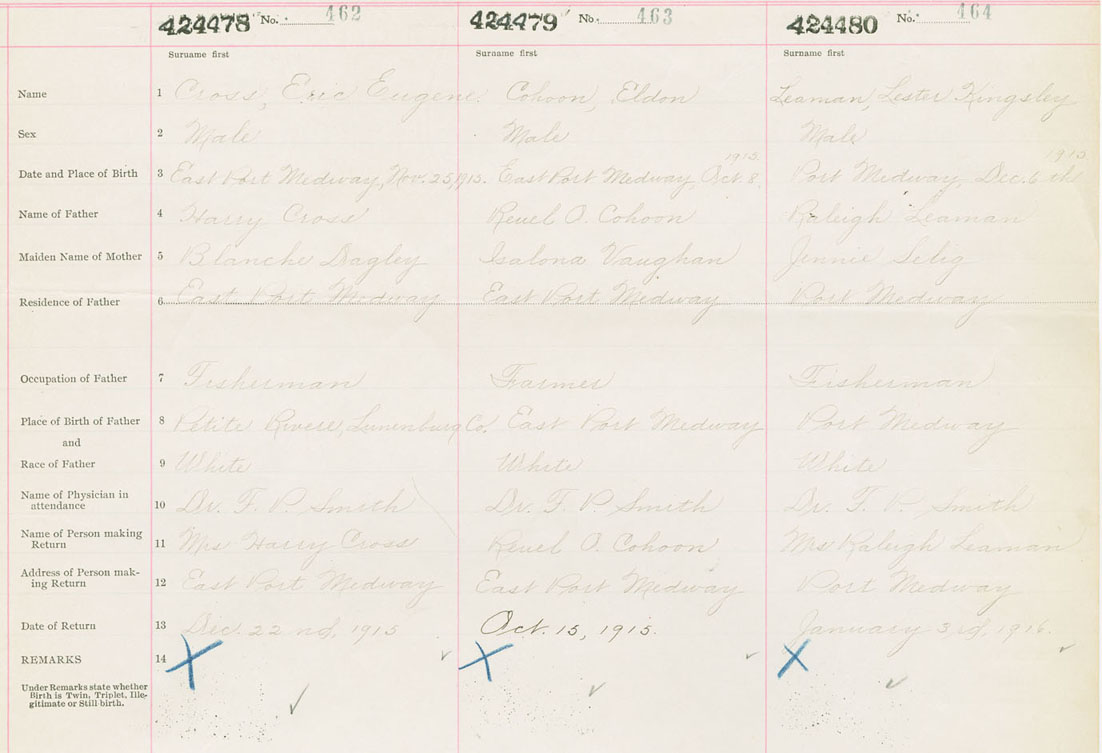 424478 No. 462 424479 No. 463 424480 No. 464
Surname first Surname first Surname first
Name 1 Cross, Eric Eugene. Cohoon, Eldon Leaman, Lester Kingsley
Sex 2 Male Male Male
1915. 1915
Date and Place of Birth 3 East Port Medway, Nov. 25, 1915. East Port Medway, Oct. 8, Port Medway, Dec. 6th
Name of Father 4 Harry Cross Reuel O. Cohoon Raleigh Leaman
Maiden Name of Mother 5 Blanche Dagley Isalona Vaughan Jennie Selig
Residence of Father 6 East Port Medway East Port Medway Port Medway
Occupation of Father 7 Fisherman Farmer Fisherman
Place of Birth of Father 8 Petite Riviere, Lunenburg Co. East Port Medway Port Medway
and
Race of Father 9 White White White
Name of Physician in
attendance 10 Dr. F. P. Smith Dr. F. P. Smith Dr. F. P. Smith
Name of Person making
Return 11 Mrs Harry Cross Reuel O. Cohoon Mrs Raleigh Leaman
Address of Person mak-
ing Return 12 East Port Medway East Port Medway Port Medway
Date of Return 13 Dec. 22nd, 1915 Oct. 15, 1915. January 3rd, 1916.
REMARKS 14
Under Remarks state whether
Birth is Twin, Triplet, Ille-
gitimate or Still-birth.